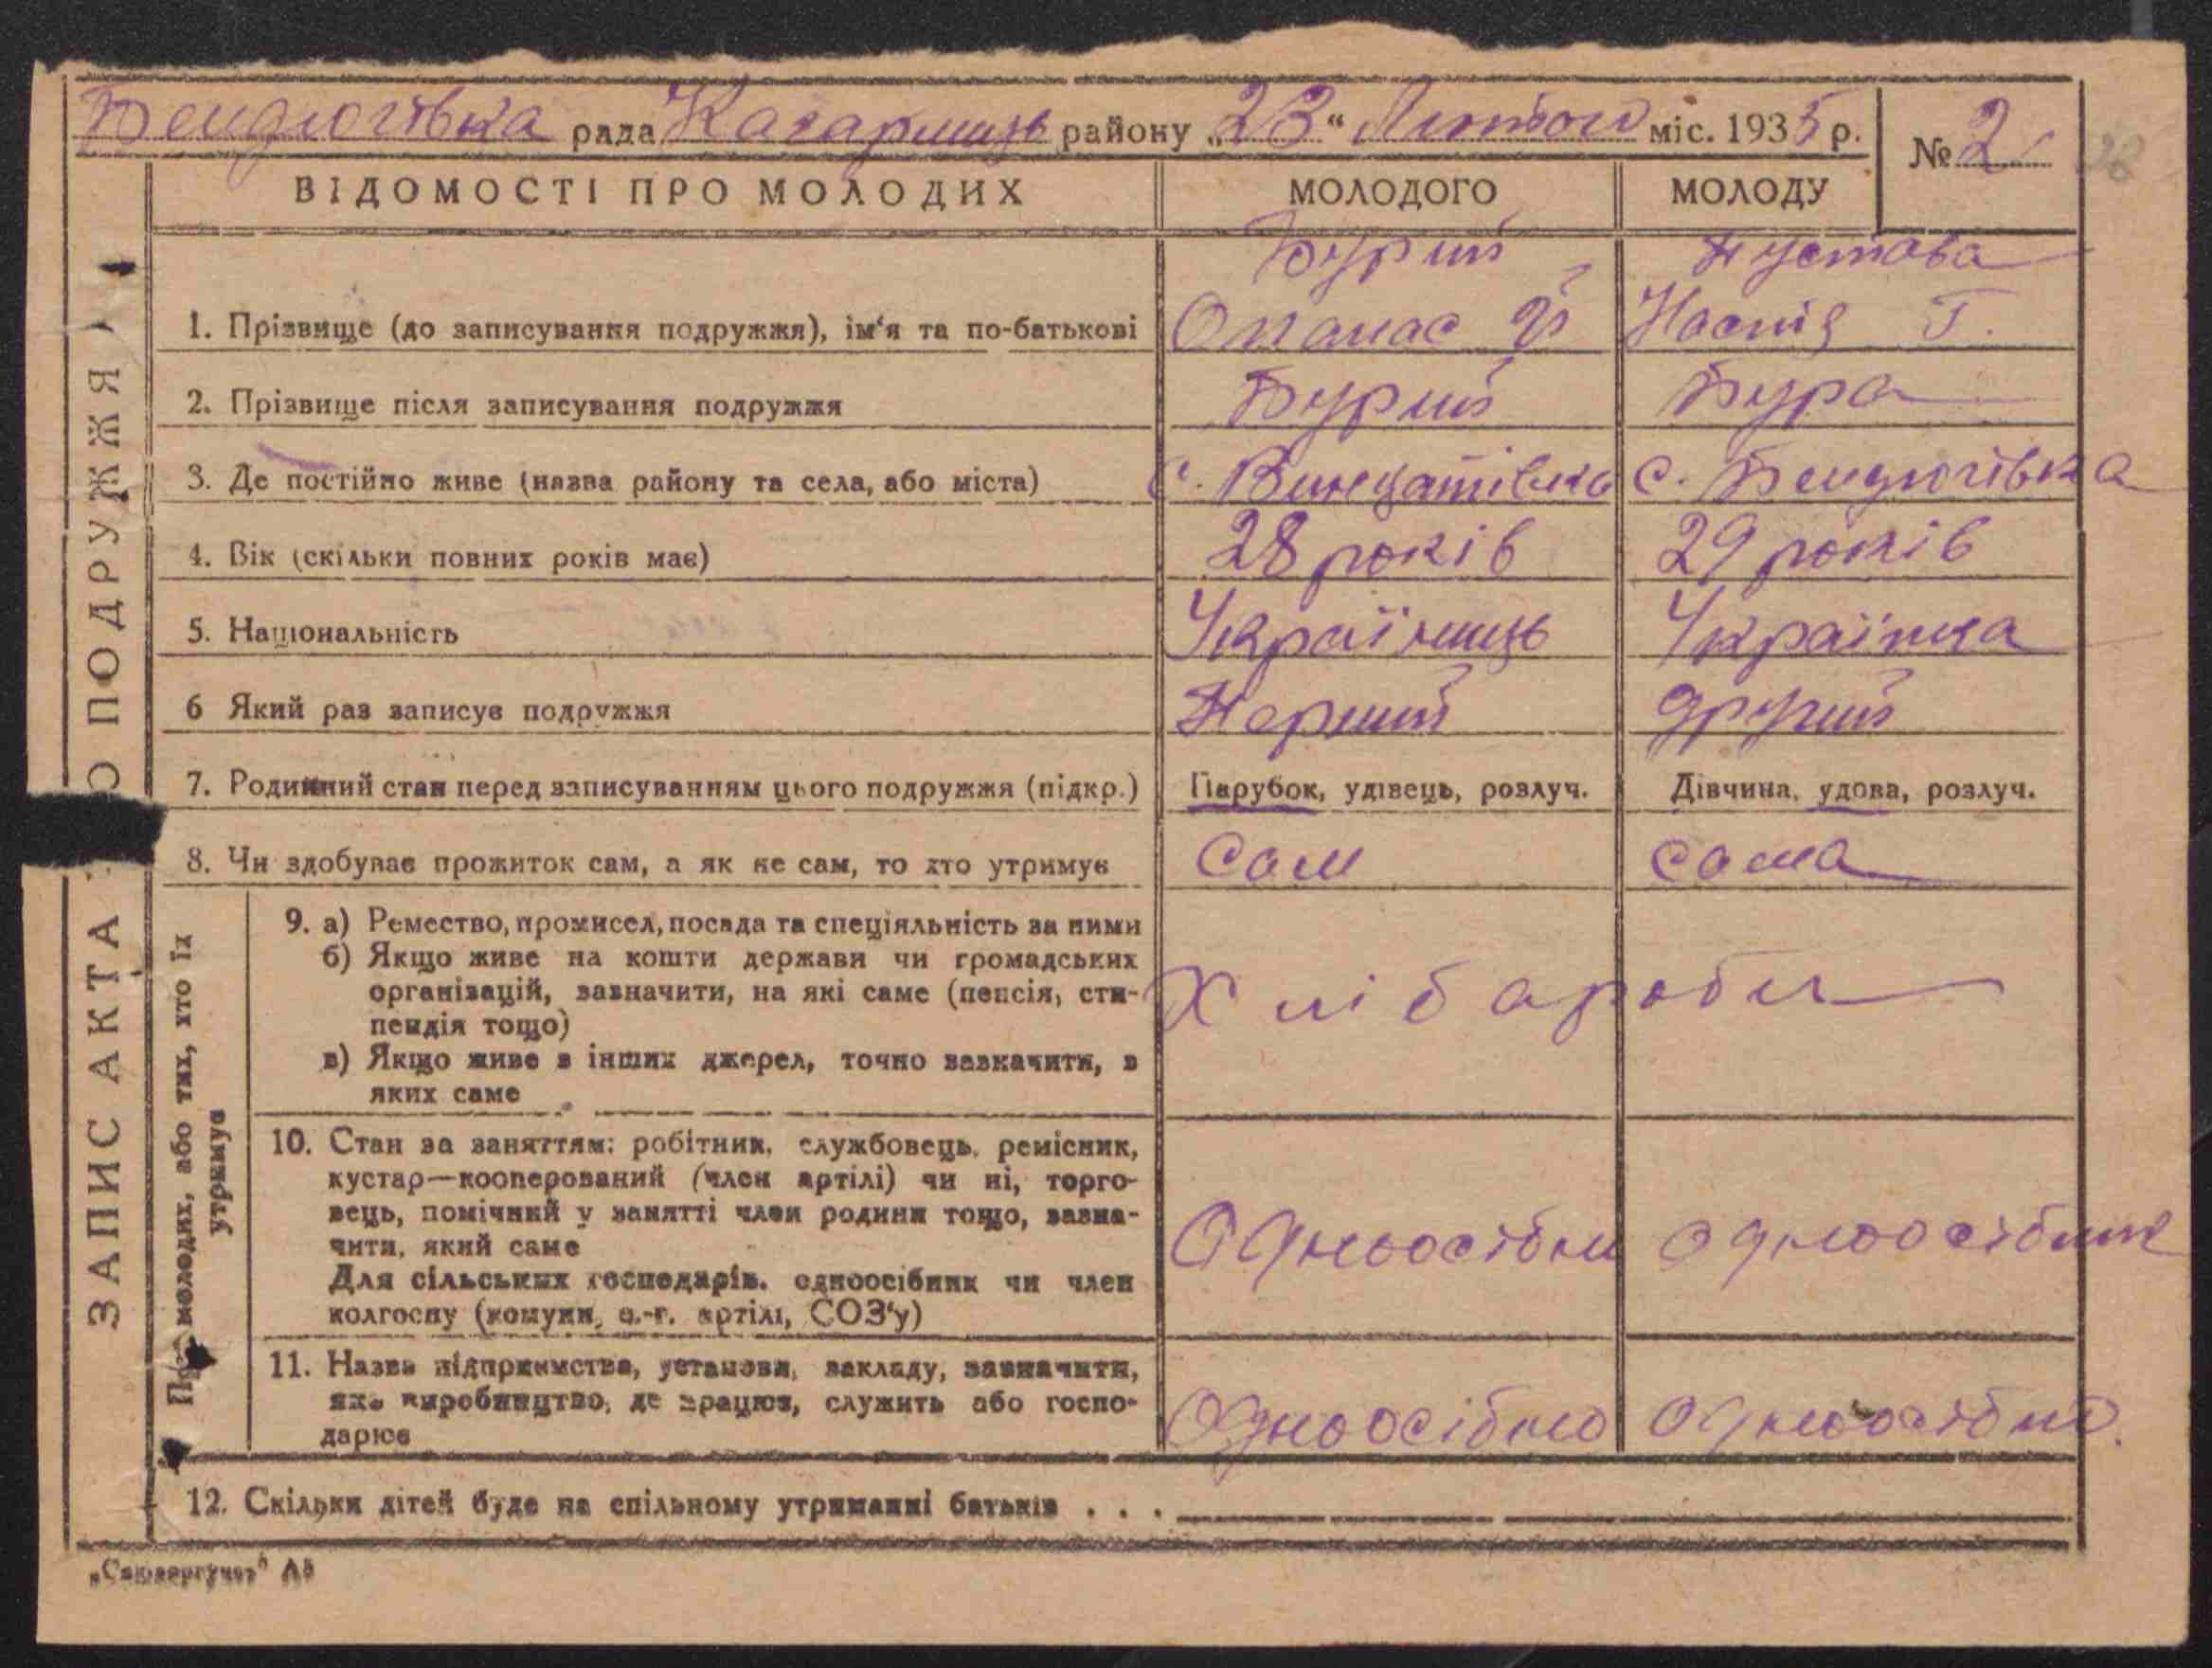 Бендюгівка рада Кагарлицьк району „23“ Лютого міс. 1935 р. № 2
ВІДОМОСТІ ПРО МОЛОДИХ МОЛОДОГО МОЛОДУ
Бурий Пустова
1. Прізвище (до записування подружжя), ім‘я та по-батькові Опанас Й Настя Г.
2. Прізвище після записування подружжя Бурий Бура
3. Де постійно живе (назва району та села, або міста) с. Винцатівка с. Бендюгівка
4. Вік (скільки повних років має) 28 років 29 років
5. Національність Україниць Українка
6 Який раз записує подружжя Перший другий
7. Родинний стан перед записуванням цього подружжя (підкр.) Парубок, удівець, розлуч. Дівчина, удова, розлуч.
8. Чи здобуває прожиток сам, а як не сам, то хто утримує Сам сама
9. а) Ремество, промисел, посада та спеціяльність за ними
б) Якщо живе на кошти держави чи громадських
організацій, зазначити, на які саме (пенсія, сти-
пендія тощо)
Хлібароби
в) Якщо живе з інших джерел, точно зазначити, з
яких саме
10. Стан за заняттям: робітник, службовець, ремісник,
кустар—кооперований (член артілі) чи ні, торго-
вець, помічний у занятті член родини тощо, зазна-
чити, який саме
Одноосібни одноосібник
Для сільських господарів. одноосібник чи член
колгоспу (комуни, с.-г. артілі, СОЗ‘у)
11. Назва підприємства, установи, закладу, зазначити,
яке виробництво, де працює, служить або госпо-
дарює
Одноосібно одноосібно.
12. Скільки дітей буде на спільному утриманні батьків . . .
ЗАПИС АКТА О ПОДРУЖЖЯ
молодих, або тих, хто їх
утримує